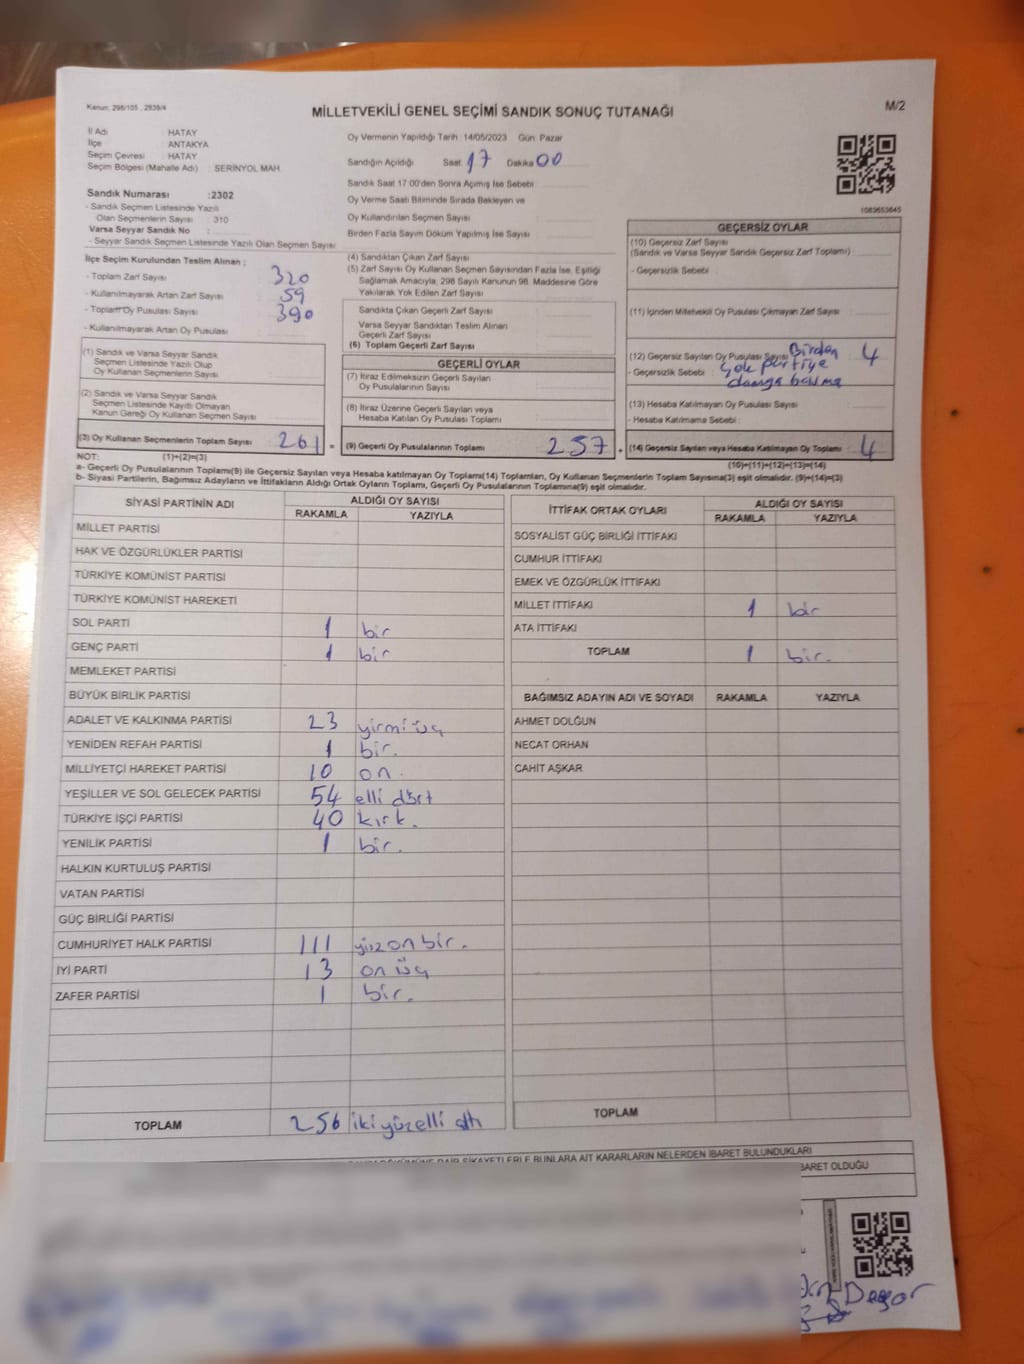 Kanun: 298/105 , 2839/4
MİLLETVEKİLİ GENEL SEÇİMİ SANDIK SONUÇ TUTANAĞI
M/2
İl Adı : HATAY
İlçe : ANTAKYA
Seçim Çevresi : HATAY
Seçim Bölgesi (Mahalle Adı) : SERİNYOL MAH.
Sandık Numarası :2302
- Sandık Seçmen Listesinde Yazılı
Olan Seçmenlerin Sayısı : 310
Varsa Seyyar Sandık No :
- Seyyar Sandık Seçmen Listesinde Yazılı Olan Seçmen Sayısı :
Oy Vermenin Yapıldığı Tarih :14/05/2023 Gün :Pazar
Sandığın Açıldığı Saat 17 Dakika 00
Sandık Saat 17:00'den Sonra Açımış İse Sebebi :
Oy Verme Saati Bitiminde Sırada Bekleyen ve
Oy Kullandırılan Seçmen Sayısı :
Birden Fazla Sayım Döküm Yapılmış İse Sayısı :
1083653645
İlçe Seçim Kurulundan Teslim Alınan ;
- Toplam Zarf Sayısı : 320
- Kullanılmayarak Artan Zarf Sayısı : 59
- Toplam Oy Pusulası Sayısı : 390
- Kullanılmayarak Artan Oy Pusulası :
(1) Sandık ve Varsa Seyyar Sandık
Seçmen Listesinde Yazılı Olup
Oy Kullanan Seçmenlerin Sayısı :
(2) Sandık ve Varsa Seyyar Sandık
Seçmen Listesinde Kayıtlı Olmayan
Kanun Gereği Oy Kullanan Seçmen Sayısı :
(3) Oy Kullanan Seçmenlerin Toplam Sayısı : 261 =
(4) Sandıktan Çıkan Zarf Sayısı :
(5) Zarf Sayısı Oy Kullanan Seçmen Sayısından Fazla İse, Eşitliği
Sağlamak Amacıyla, 298 Sayılı Kanunun 98. Maddesine Göre
Yakılarak Yok Edilen Zarf Sayısı :
Sandıkta Çıkan Geçerli Zarf Sayısı :
Varsa Seyyar Sandıktan Teslim Alınan
Geçerli Zarf Sayısı :
(6) Toplam Geçerli Zarf Sayısı
GEÇERLİ OYLAR
(7) İtiraz Edilmeksizin Geçerli Sayılan
Oy Pusulalarının Sayısı :
(8) İtiraz Üzerine Geçerli Sayılan veya
Hesaba Katılan Oy Pusulaları Toplamı :
(9) Geçerli Oy Pusulalarının Toplamı : 257 +
GEÇERSİZ OYLAR
(10) Geçersiz Zarf Sayısı
(Sandık ve Varsa Seyyar Sandık Geçersiz Zarf Toplamı) :
- Geçersizlik Sebebi :
(11) İçinden Milletvekili Oy Pusulası Çıkmayan Zarf Sayısı :
(12) Geçersiz Sayılan Oy Pusulası Sayısı : 4
- Geçersizlik Sebebi : Birden
çok partiye
damga basma
(13) Hesaba Katılmayan Oy Pusulası Sayısı :
- Hesaba Katılmama Sebebi :
(14) Geçersiz Sayılan veya Hesaba Katılmayan Oy Toplamı : 4
NOT: (1)+(2)=(3)
(10)+(11)+(12)+(13)=(14)
a- Geçerli Oy Pusulalarının Toplamı(9) ile Geçersiz Sayılan veya Hesaba katılmayan Oy Toplamı(14) Toplamları, Oy Kullanan Seçmenlerin Toplam Sayısına(3) eşit olmalıdır. (9)+(14)=(3)
b- Siyasi Partilerin, Bağımsız Adayların ve İttifakların Aldığı Ortak Oyların Toplamı, Geçerli Oy Pusulalarının Toplamına(9) eşit olmalıdır.
SİYASİ PARTİNİN ADI ALDIĞI OY SAYISI
RAKAMLA YAZIYLA
MİLLET PARTİSİ
HAK VE ÖZGÜRLÜKLER PARTİSİ
TÜRKİYE KOMÜNİST PARTİSİ
TÜRKİYE KOMÜNİST HAREKETİ
SOL PARTİ 1 bir
GENÇ PARTİ 1 bir
MEMLEKET PARTİSİ
BÜYÜK BİRLİK PARTİSİ
ADALET VE KALKINMA PARTİSİ 23 yirmi üç
YENİDEN REFAH PARTİSİ 1 bir.
MİLLİYETÇİ HAREKET PARTİSİ 10 on.
YEŞİLLER VE SOL GELECEK PARTİSİ 54 elli dört
TÜRKİYE İŞÇİ PARTİSİ 40 kırk.
YENİLİK PARTİSİ 1 bir.
HALKIN KURTULUŞ PARTİSİ
VATAN PARTİSİ
GÜÇ BİRLİĞİ PARTİSİ
CUMHURİYET HALK PARTİSİ 111 yüz on bir.
İYİ PARTİ 13 on üç
ZAFER PARTİSİ 1 bir.
TOPLAM 256 iki yüz elli altı
İTTİFAK ORTAK OYLARI ALDIĞI OY SAYISI
RAKAMLA YAZIYLA
SOSYALİST GÜÇ BİRLİĞİ İTTİFAKI
CUMHUR İTTİFAKI
EMEK VE ÖZGÜRLÜK İTTİFAKI
MİLLET İTTİFAKI 1 bir
ATA İTTİFAKI
TOPLAM 1 bir.
BAĞIMSIZ ADAYIN ADI VE SOYADI RAKAMLA YAZIYLA
AHMET DOLĞUN
NECAT ORHAN
CAHİT AŞKAR
TOPLAM
DAİR ŞİKAYETLERLE BUNLARA AİT KARARLARIN NELERDEN İBARET BULUNDUKLARI
İBARET OLDUĞU